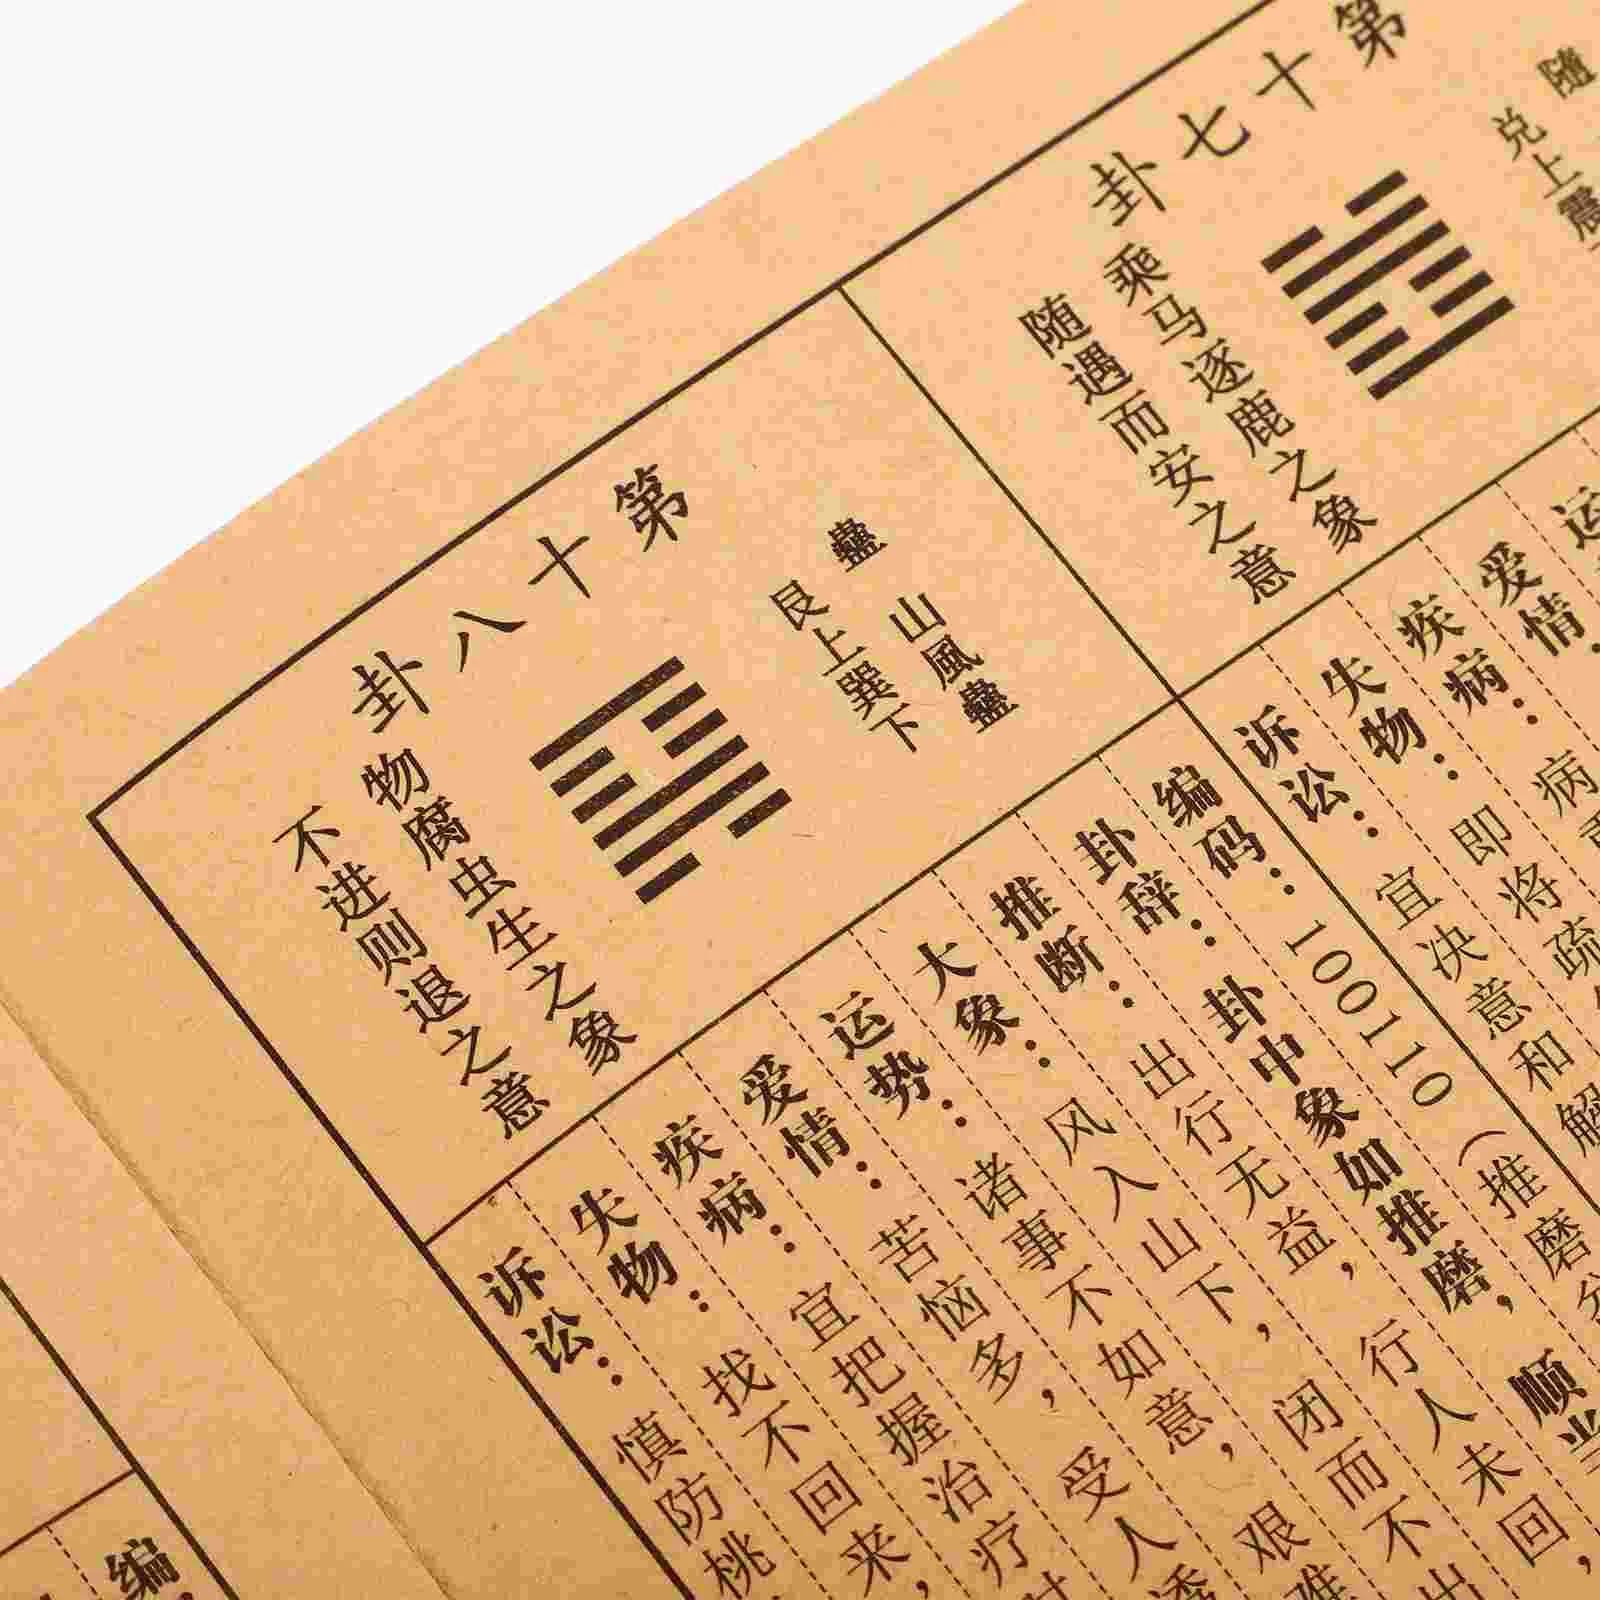 第十七卦
随
兑上震
乘马逐鹿之象
随遇而安之意
爱情:
疾病:
失物: 即将
诉讼: 宜决意和解
第十八卦
蠱 山風蠱
艮上巽下
物腐虫生之象
不进则退之意
编码: 100110 (推磨
卦辞: 卦中象如推磨, 顺当
推断: 出行无益, 行人未回,
大象: 风入山下, 闭而不出
运势: 诸事不如意, 艰难
爱情: 苦恼多, 受人诱
疾病: 宜把握治疗
失物: 找不回来,
诉讼: 慎防桃
编